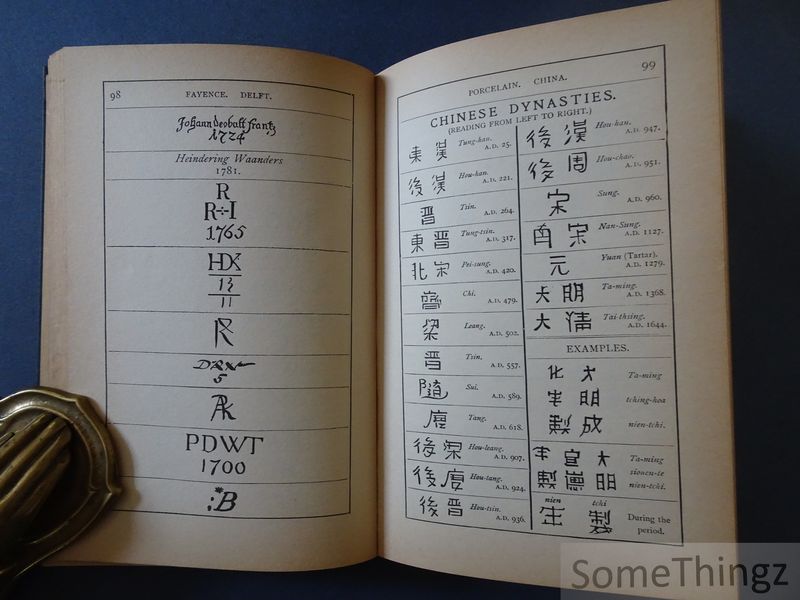 98
FAYENCE. DELFT.
Johann deobalt frantz
1724
Heindering Waanders
1781.
R
R÷I
1765
HDK
13
11
R
DRW
5
AK
PDWT
1700
B
PORCELAIN. CHINA.
99
CHINESE DYNASTIES.
(READING FROM LEFT TO RIGHT.)
東漢 Tung-han. A.D. 25.
後漢 Hou-han. A.D. 221.
晋 Tsin. A.D. 264.
東晋 Tung-tsin. A.D. 317.
北宋 Pei-sung. A.D. 420.
齊 Chi. A.D. 479.
梁 Leang. A.D. 502.
晋 Tsin. A.D. 557.
隨 Sui. A.D. 589.
Tang. A.D. 618.
後梁 Hou-leang. A.D. 907.
後 Hou-tang. A.D. 924.
後晋 Hou-tsin. A.D. 936.
後漢 Hou-han. A.D. 947.
後周 Hou-chao. A.D. 951.
宋 Sung. A.D. 960.
宋 Nan-Sung. A.D. 1127.
元 Yuan (Tartar). A.D. 1279.
大明 Ta-ming. A.D. 1368.
大清 Tai-thsing. A.D. 1644.
EXAMPLES.
化大 Ta-ming
年明 tching-hoa
製成 nien-tchi.
年宣大 Ta-ming
製德明 siouen-te
nien-tchi.
nien tchi
年製 During the
period.
SomeThingz